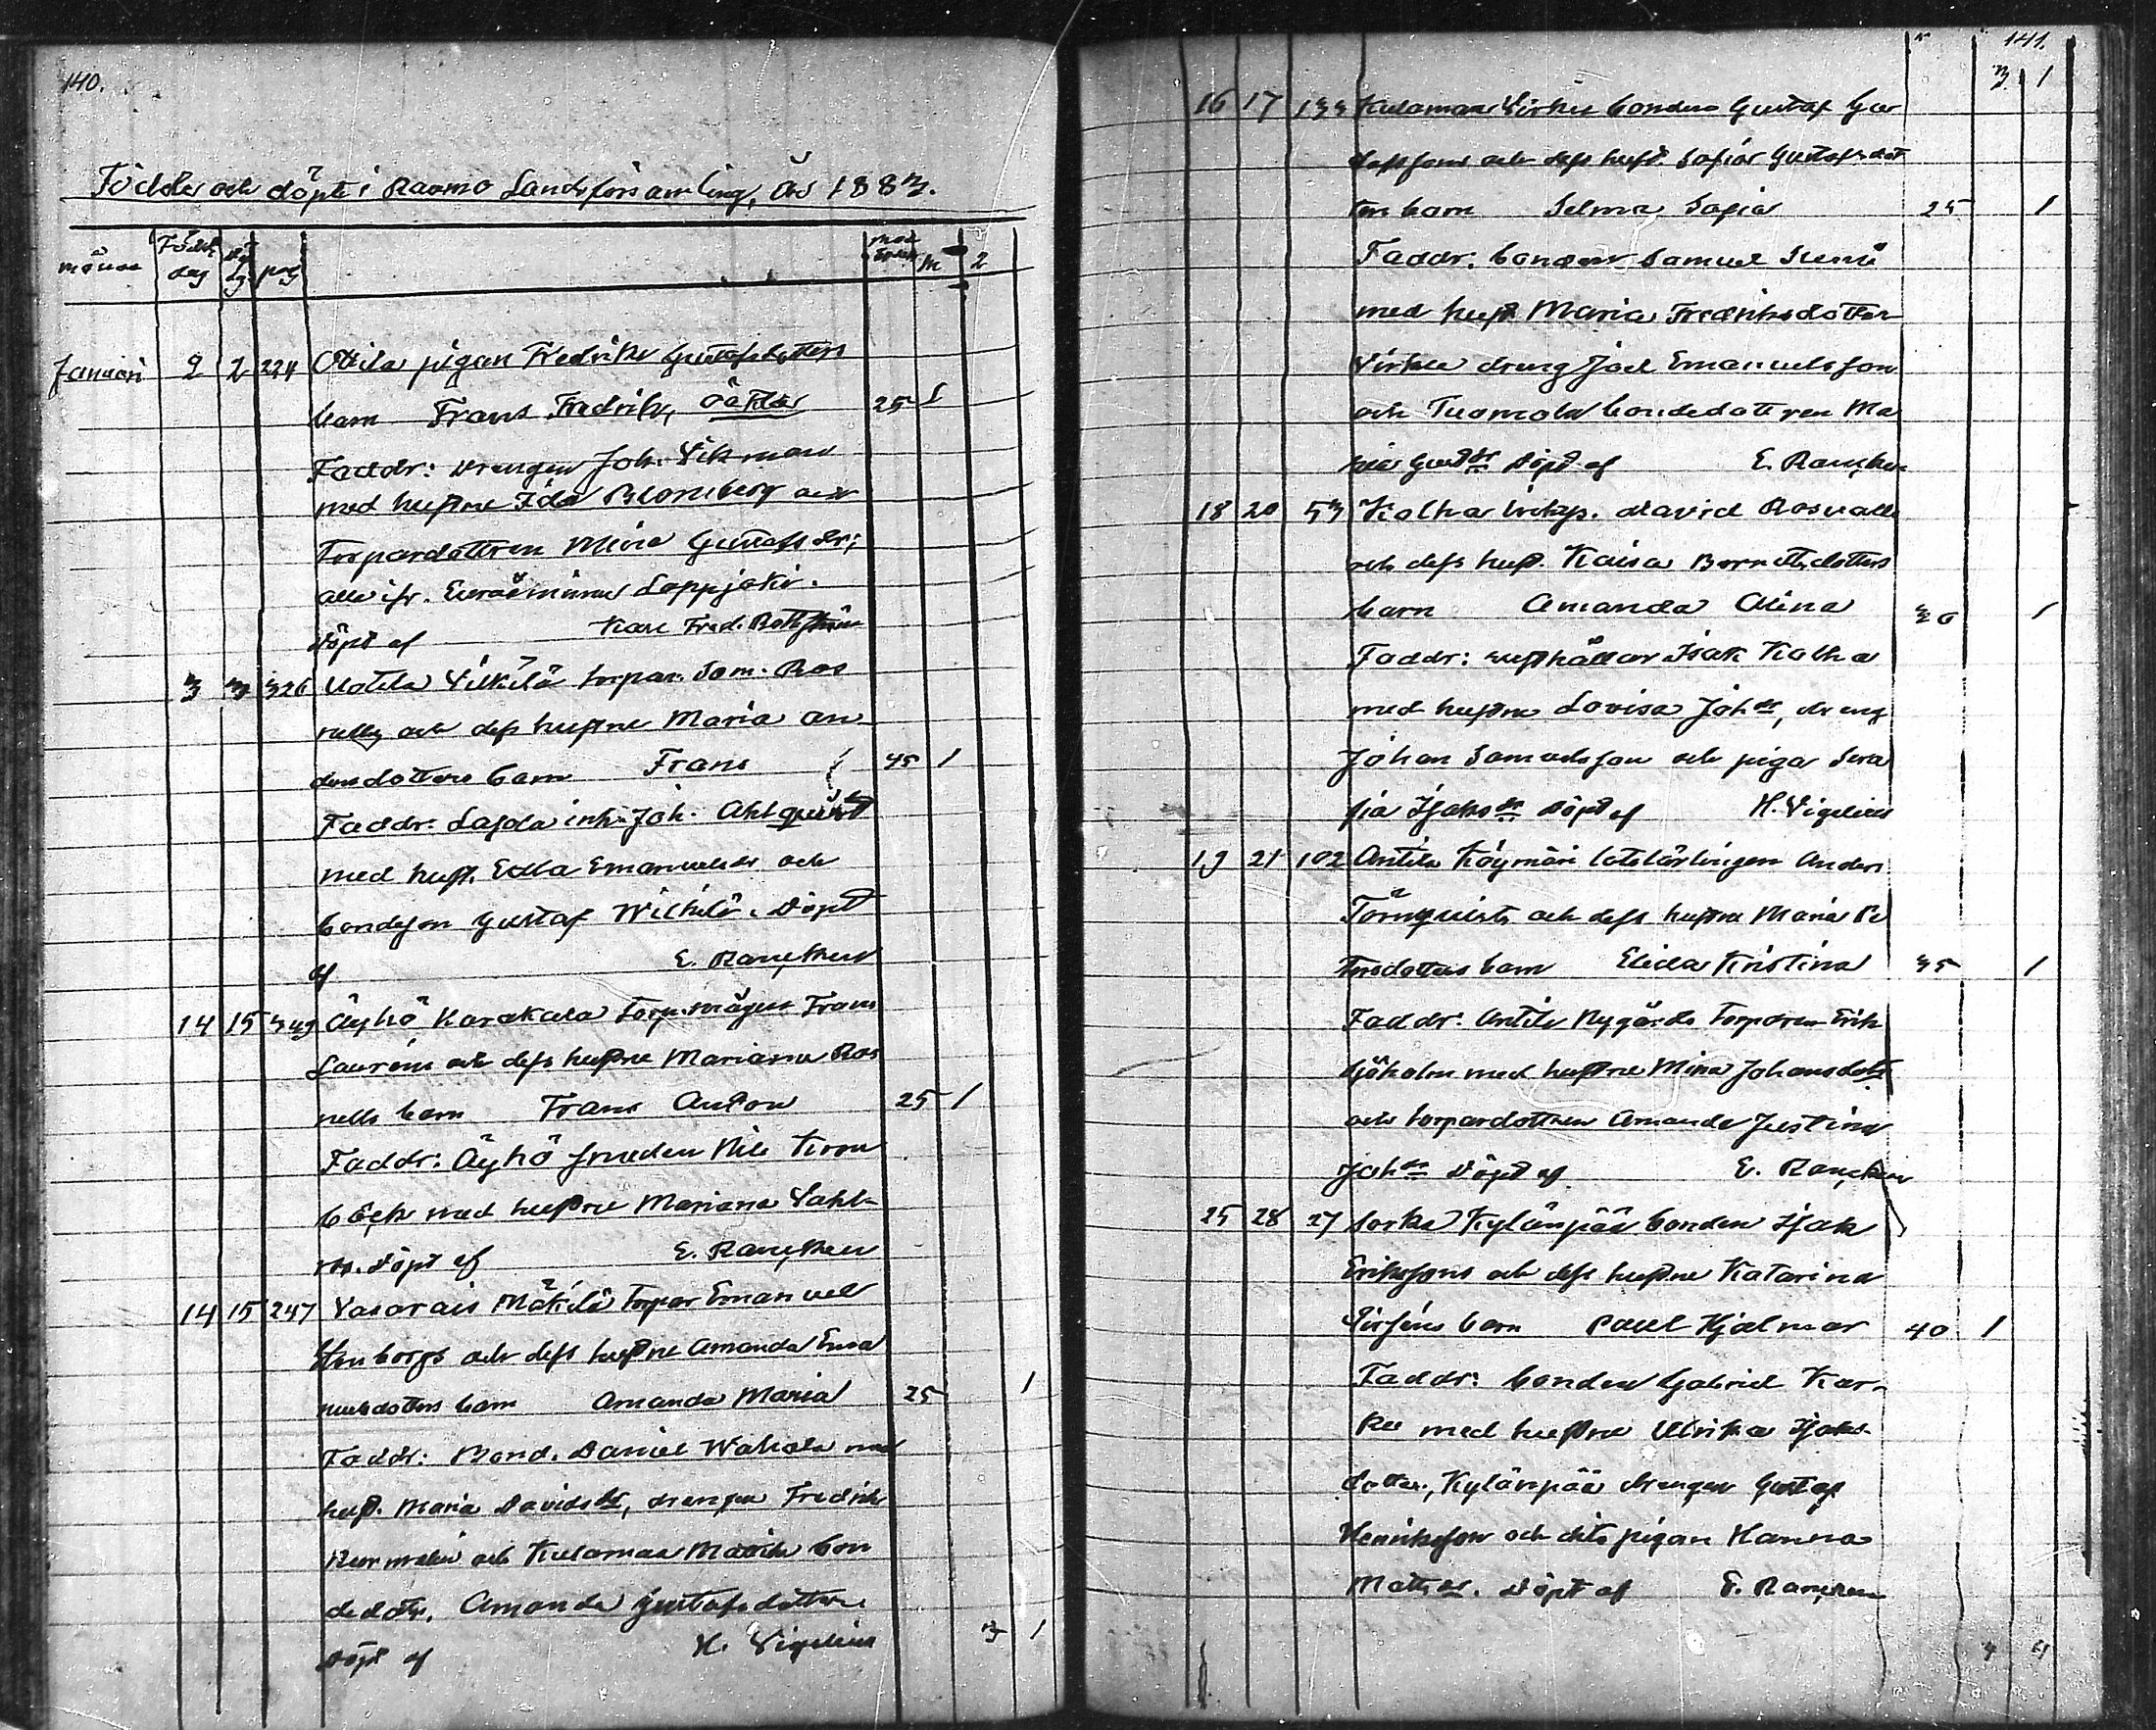 140.
Födde och döpte i Raumo Landsförsamling, år 1883.
månad Född dag pag m 2
Januari 2 2 224 Ottila pigan Fredrika Gustafsdotters
barn Frans Fredrik, oäkta 25 1
Faddr: drengen Joh. Vikman
med hustru Ida Blomberg och
Torpardottren Mina Gustafsdr;
alla ifr. Euraåminne Lappjoki.
Döpt af Karl Fred.
3 3 326 Uotila Vilkilä torpar. Ros
och dess hustru Maria An
dersdotters barn Frans 45 1
Faddr. inh. Joh. Ahlqvist
med hust. Edla Emanuelsdr och
bondeson Gustaf Wilkilä. Döpt
af E. Rancken
14 15 349 Äyhö Karakala Torp.mågen Frans
Lauréns och dess hustru Mariana Ros
nells barn Frans Anton 25 1
Faddr: Äyhö smeden Nils Kron
bäck med hustru Mariana Sahl-
ros. Döpt af E. Rancken
14 15 247 Vasarais Mäkilä torpar Emanuel
Stenborgs och dess hustru Amanda Ema
nuelsdotters barn Amanda Maria 25 1
Faddr: Bond. Daniel Wahala med
hust. Maria Davidsdr, drengen Fredrik
och Kulamaa Mattila bon
dedotr. Amanda Gustafsdotter
Döpt af H. Vigelius 3 1
141.
3 1
16 17 133 Kulamaa Sirkka bonden Gustaf Gus
tafssons och dess hust. Sofia Gustafsdot
ters barn Selma Sofia 25 1
Faddr: bonden Samuel
med hust. Maria Fredriksdotter
Sirkka dreng Joel Emanuelsson
och Tuomola bondedottren Ma
ria Gustdr Döpt af E. Rancken
18 20 53 Kolha David Rosvall
och dess hust. Kaisa dotters
barn Amanda Alina 36 1
Faddr: rusthållar Isak Kolha
med hustru Lovisa Johdr, dreng
Johan Samuelsson och piga Sera
fia Isaksdr Döpt af H. Vigelius
19 21 102 Antila Köymäri lotslärlingen Anders
Törnqvists och dess hustru Maria Pe
tersdotters barn Elida Kristina 35 1
Faddr: Antila Nygårds torparen Erik
Sjöholm med hustru Mina Johansdotr
och torpardottren Amanda Justina
Johdr Döpt af E. Rancken
25 28 27 Sorka Kylänpää bonden Isak
Erikssons och dess hustru Katarina
barn Paul Hjalmar 40 1
Faddr: bonden Gabriel Kor-
ke med hustru Ulrika Isaks-
dotter, Kylänpää drengen Gustaf
Henriksson och dito pigan Hanna
Mattsdr. Döpt af E. Rancken
4 4